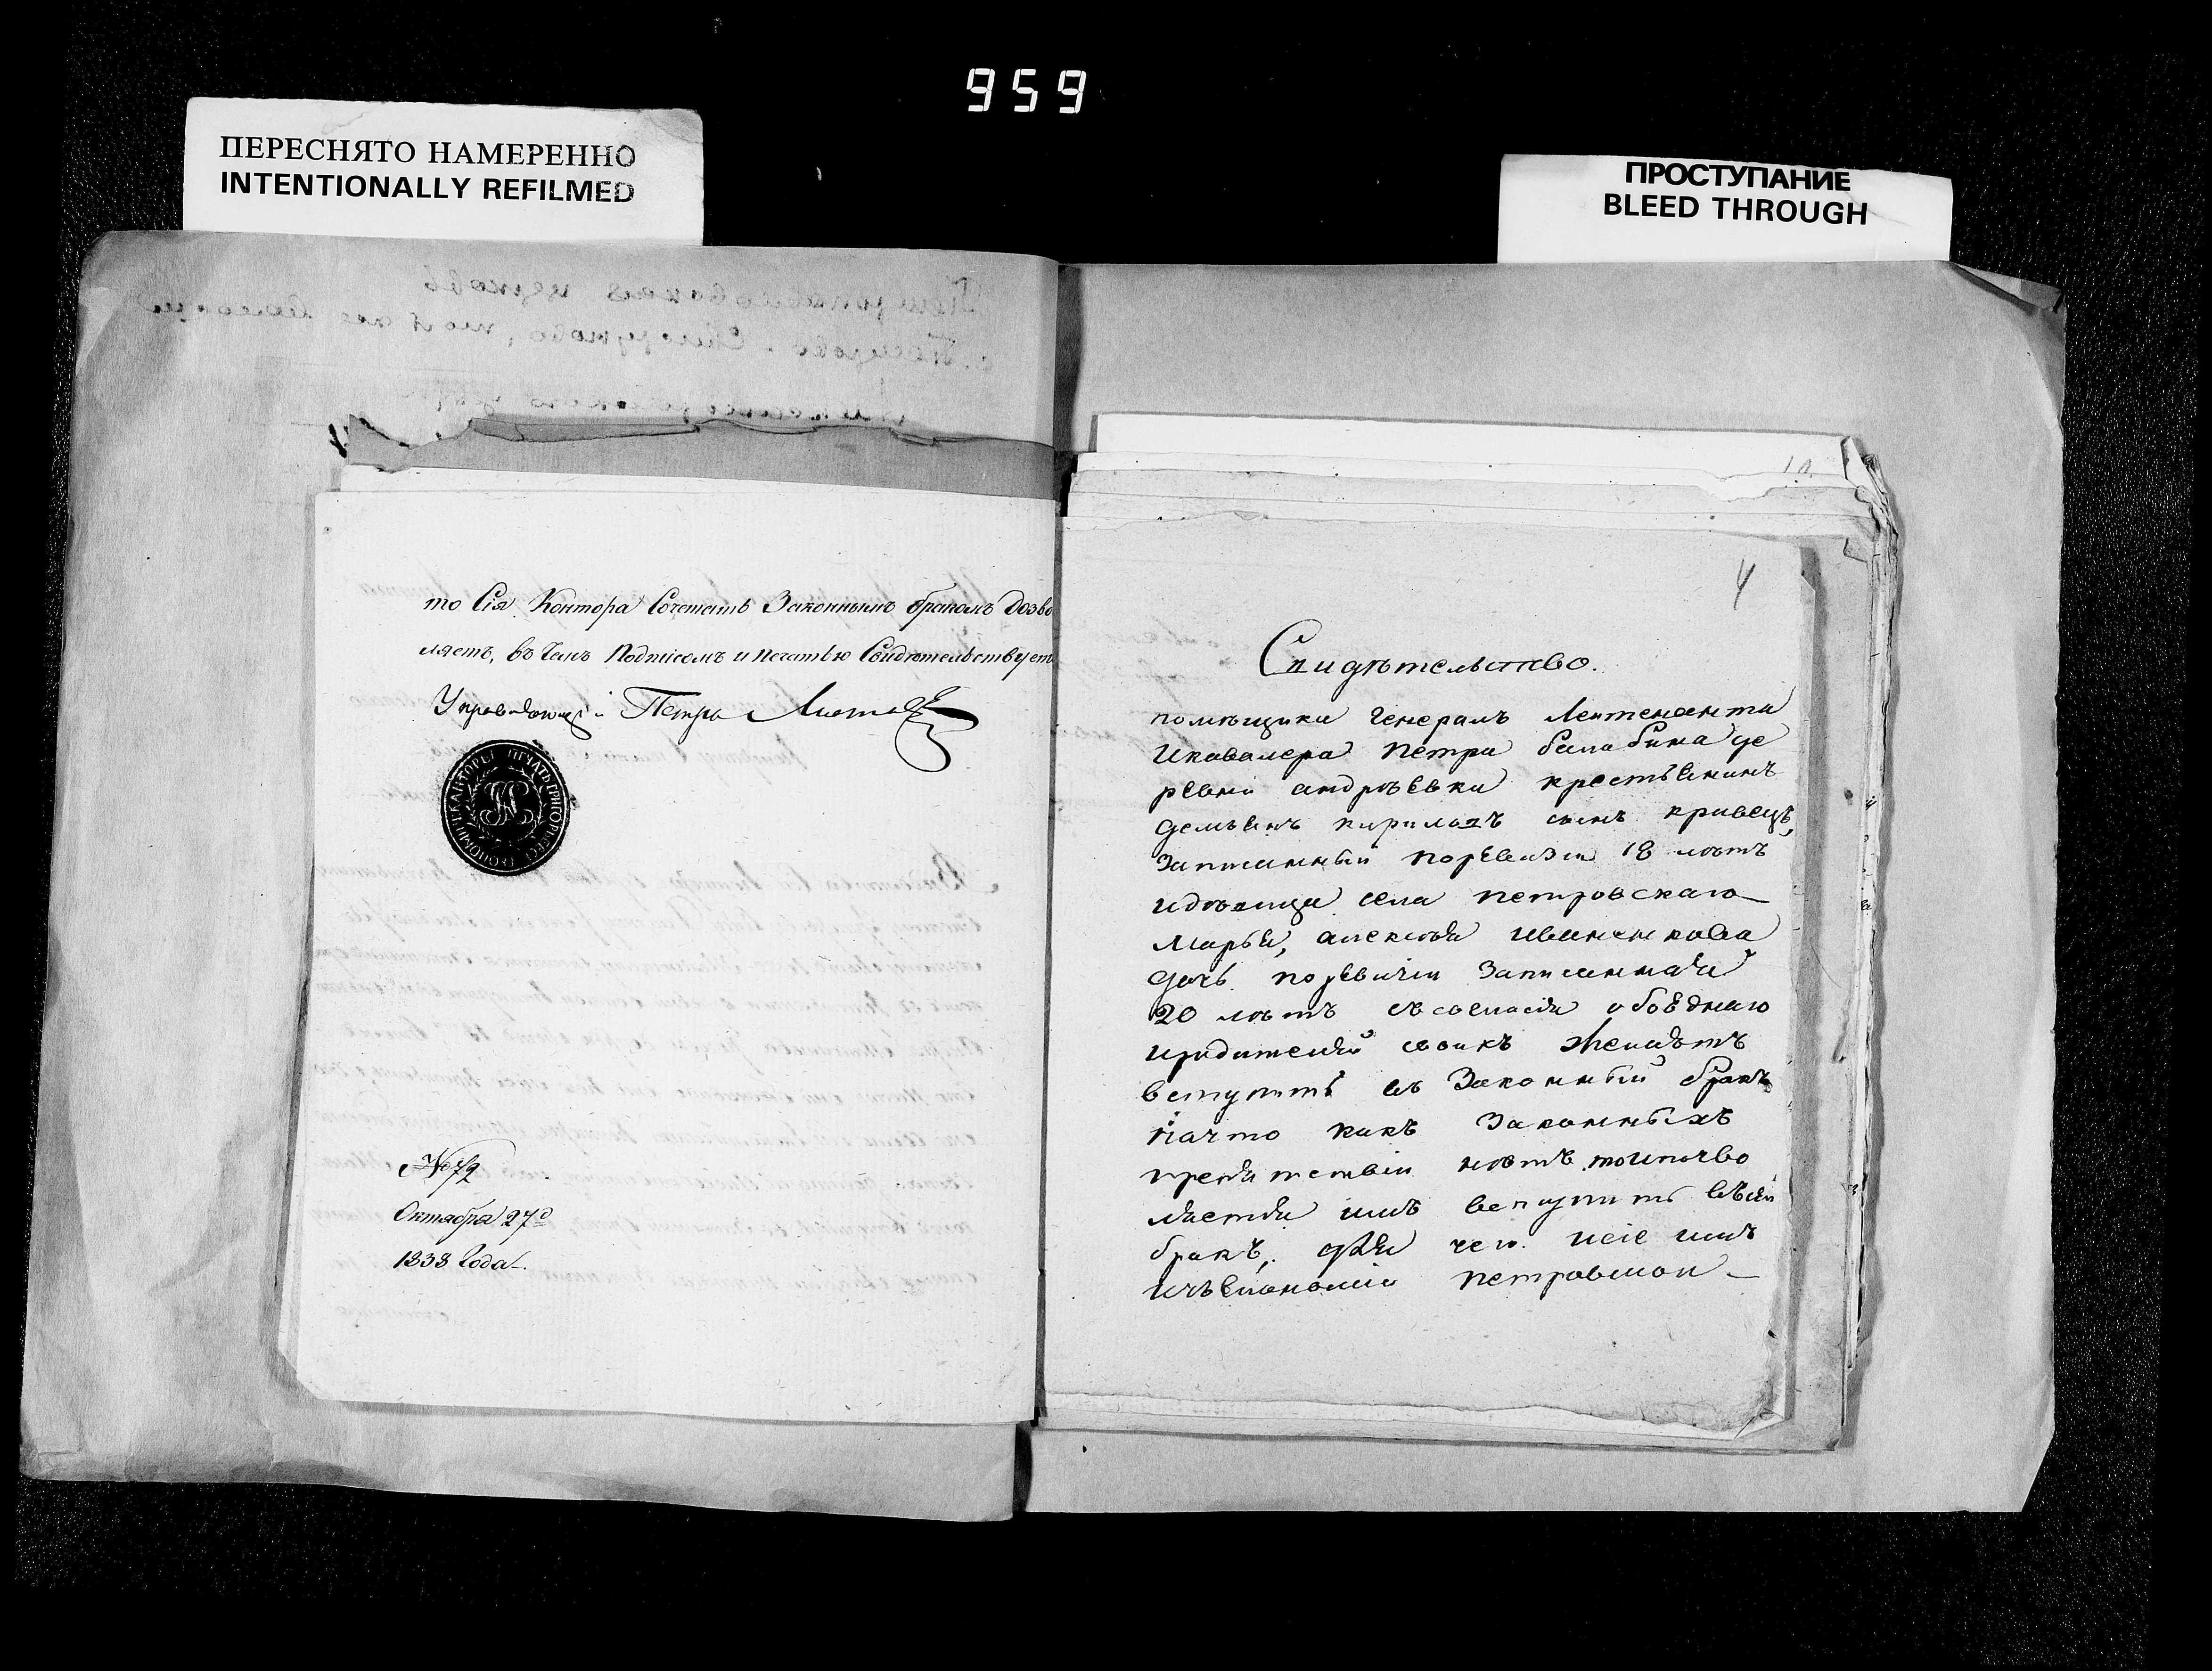 959
ПЕРЕСНЯТО НАМЕРЕННО
INTENTIONALLY REFILMED
ПРОСТУПАНИЕ
BLEED THROUGH
то Сія Контора Сочетать Законнымъ бракомъ дозво
ляетъ, въ чемъ Подписомъ и печатью Свидѣтельствуетъ
Управляющій Петръ
№ 72
Октября 27º
1838 Года.
4
Свидѣтельство.
помѣщика Генералъ Лейтенанта
Икавалера Петра балабина де
ревни андрѣевки крестьянинъ
демьянъ кириловъ сынъ кривецъ,
Записанный поревизіи 18 лѣтъ
идѣвица села петровскаго
Марья, алексѣя иваненкова
дочь поревизіи Записанная
20 лѣтъ съсогласія обоѣднаго
иродителей своихъ Желаютъ
вступить въ Законный бракъ
начто какъ Законныхъ
препятствіи нѣтъ тоипозво
ляетъся имъ вступить въсей
бракъ, для чего исіе имъ
изъекономіи петровской